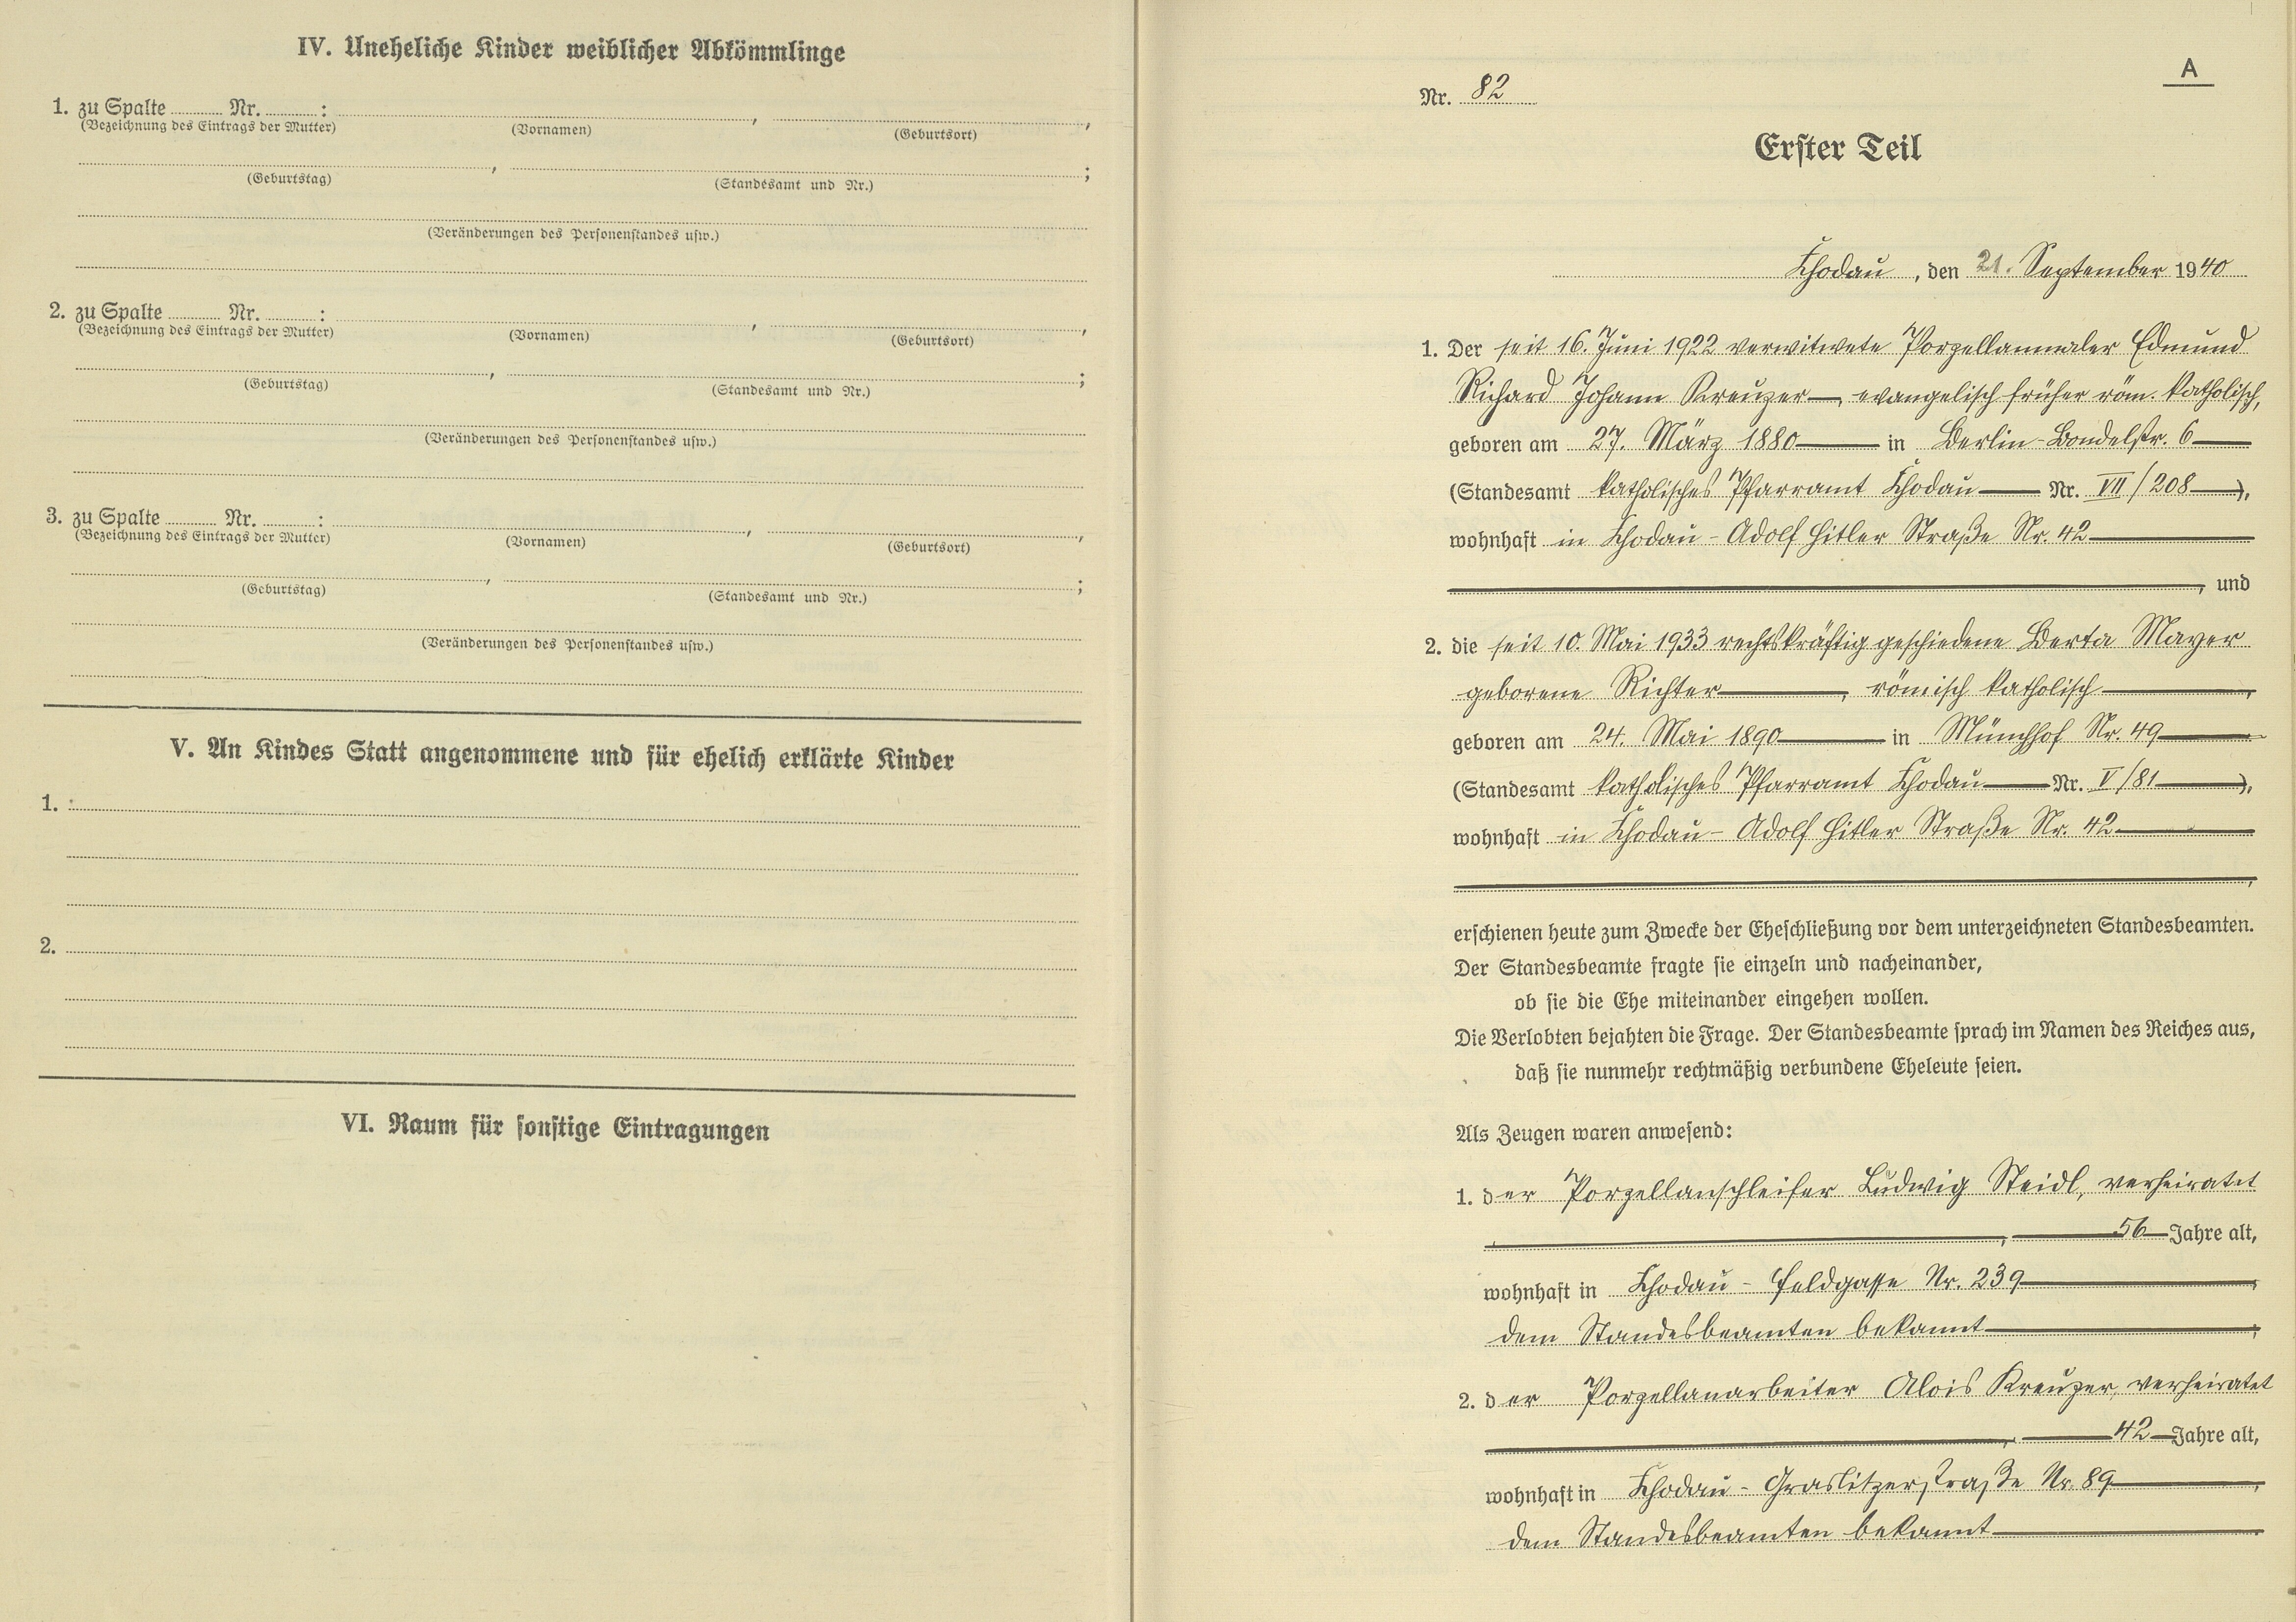 IV. Uneheliche Kinder weiblicher Abkömmlinge
1. zu Spalte ........ Nr. ........ :
(Bezeichnung des Eintrags der Mutter) (Vornamen) (Geburtsort)
(Geburtstag) (Standesamt und Nr.)
(Veränderungen des Personenstandes usw.)
2. zu Spalte ........ Nr. ........ :
(Bezeichnung des Eintrags der Mutter) (Vornamen) (Geburtsort)
(Geburtstag) (Standesamt und Nr.)
(Veränderungen des Personenstandes usw.)
3. zu Spalte ........ Nr. ........ :
(Bezeichnung des Eintrags der Mutter) (Vornamen) (Geburtsort)
(Geburtstag) (Standesamt und Nr.)
(Veränderungen des Personenstandes usw.)
V. An Kindes Statt angenommene und für ehelich erklärte Kinder
1.
2.
VI. Raum für sonstige Eintragungen
A
Nr. 82
Erster Teil
Chodau, den 21. September 1940
1. Der seit 16. Juni 1922 verwitwete Porzellanmaler Edmund
Richard Johann Kreuzer —, evangelisch früher röm. katholisch,
geboren am 27. März 1880 — in Berlin - 6 —
(Standesamt katholisches Pfarramt Chodau — Nr. VII/208 —),
wohnhaft in Chodau - Adolf Hitler Straße Nr. 42 —
—, und
2. die seit 10. Mai 1933 rechtskräftig geschiedene Berta Mayer
geborene Richter —, römisch katholisch —,
geboren am 24. Mai 1890 — in Münchhof Nr. 49 —
(Standesamt katholisches Pfarramt Chodau — Nr. V/81 —),
wohnhaft in Chodau - Adolf Hitler Straße Nr. 42 —
—,
erschienen heute zum Zwecke der Eheschließung vor dem unterzeichneten Standesbeamten.
Der Standesbeamte fragte sie einzeln und nacheinander,
ob sie die Ehe miteinander eingehen wollen.
Die Verlobten bejahten die Frage. Der Standesbeamte sprach im Namen des Reiches aus,
daß sie nunmehr rechtmäßig verbundene Eheleute seien.
Als Zeugen waren anwesend:
1. der Porzellanschleifer Ludwig Steidl, verheiratet
—, — 56 — Jahre alt,
wohnhaft in Chodau - Feldgasse Nr. 239 —,
dem Standesbeamten bekannt —;
2. der Porzellanarbeiter Alois Kreuzer, verheiratet
—, — 42 — Jahre alt,
wohnhaft in Chodau - Graslitzerstraße Nr. 89 —,
dem Standesbeamten bekannt —.